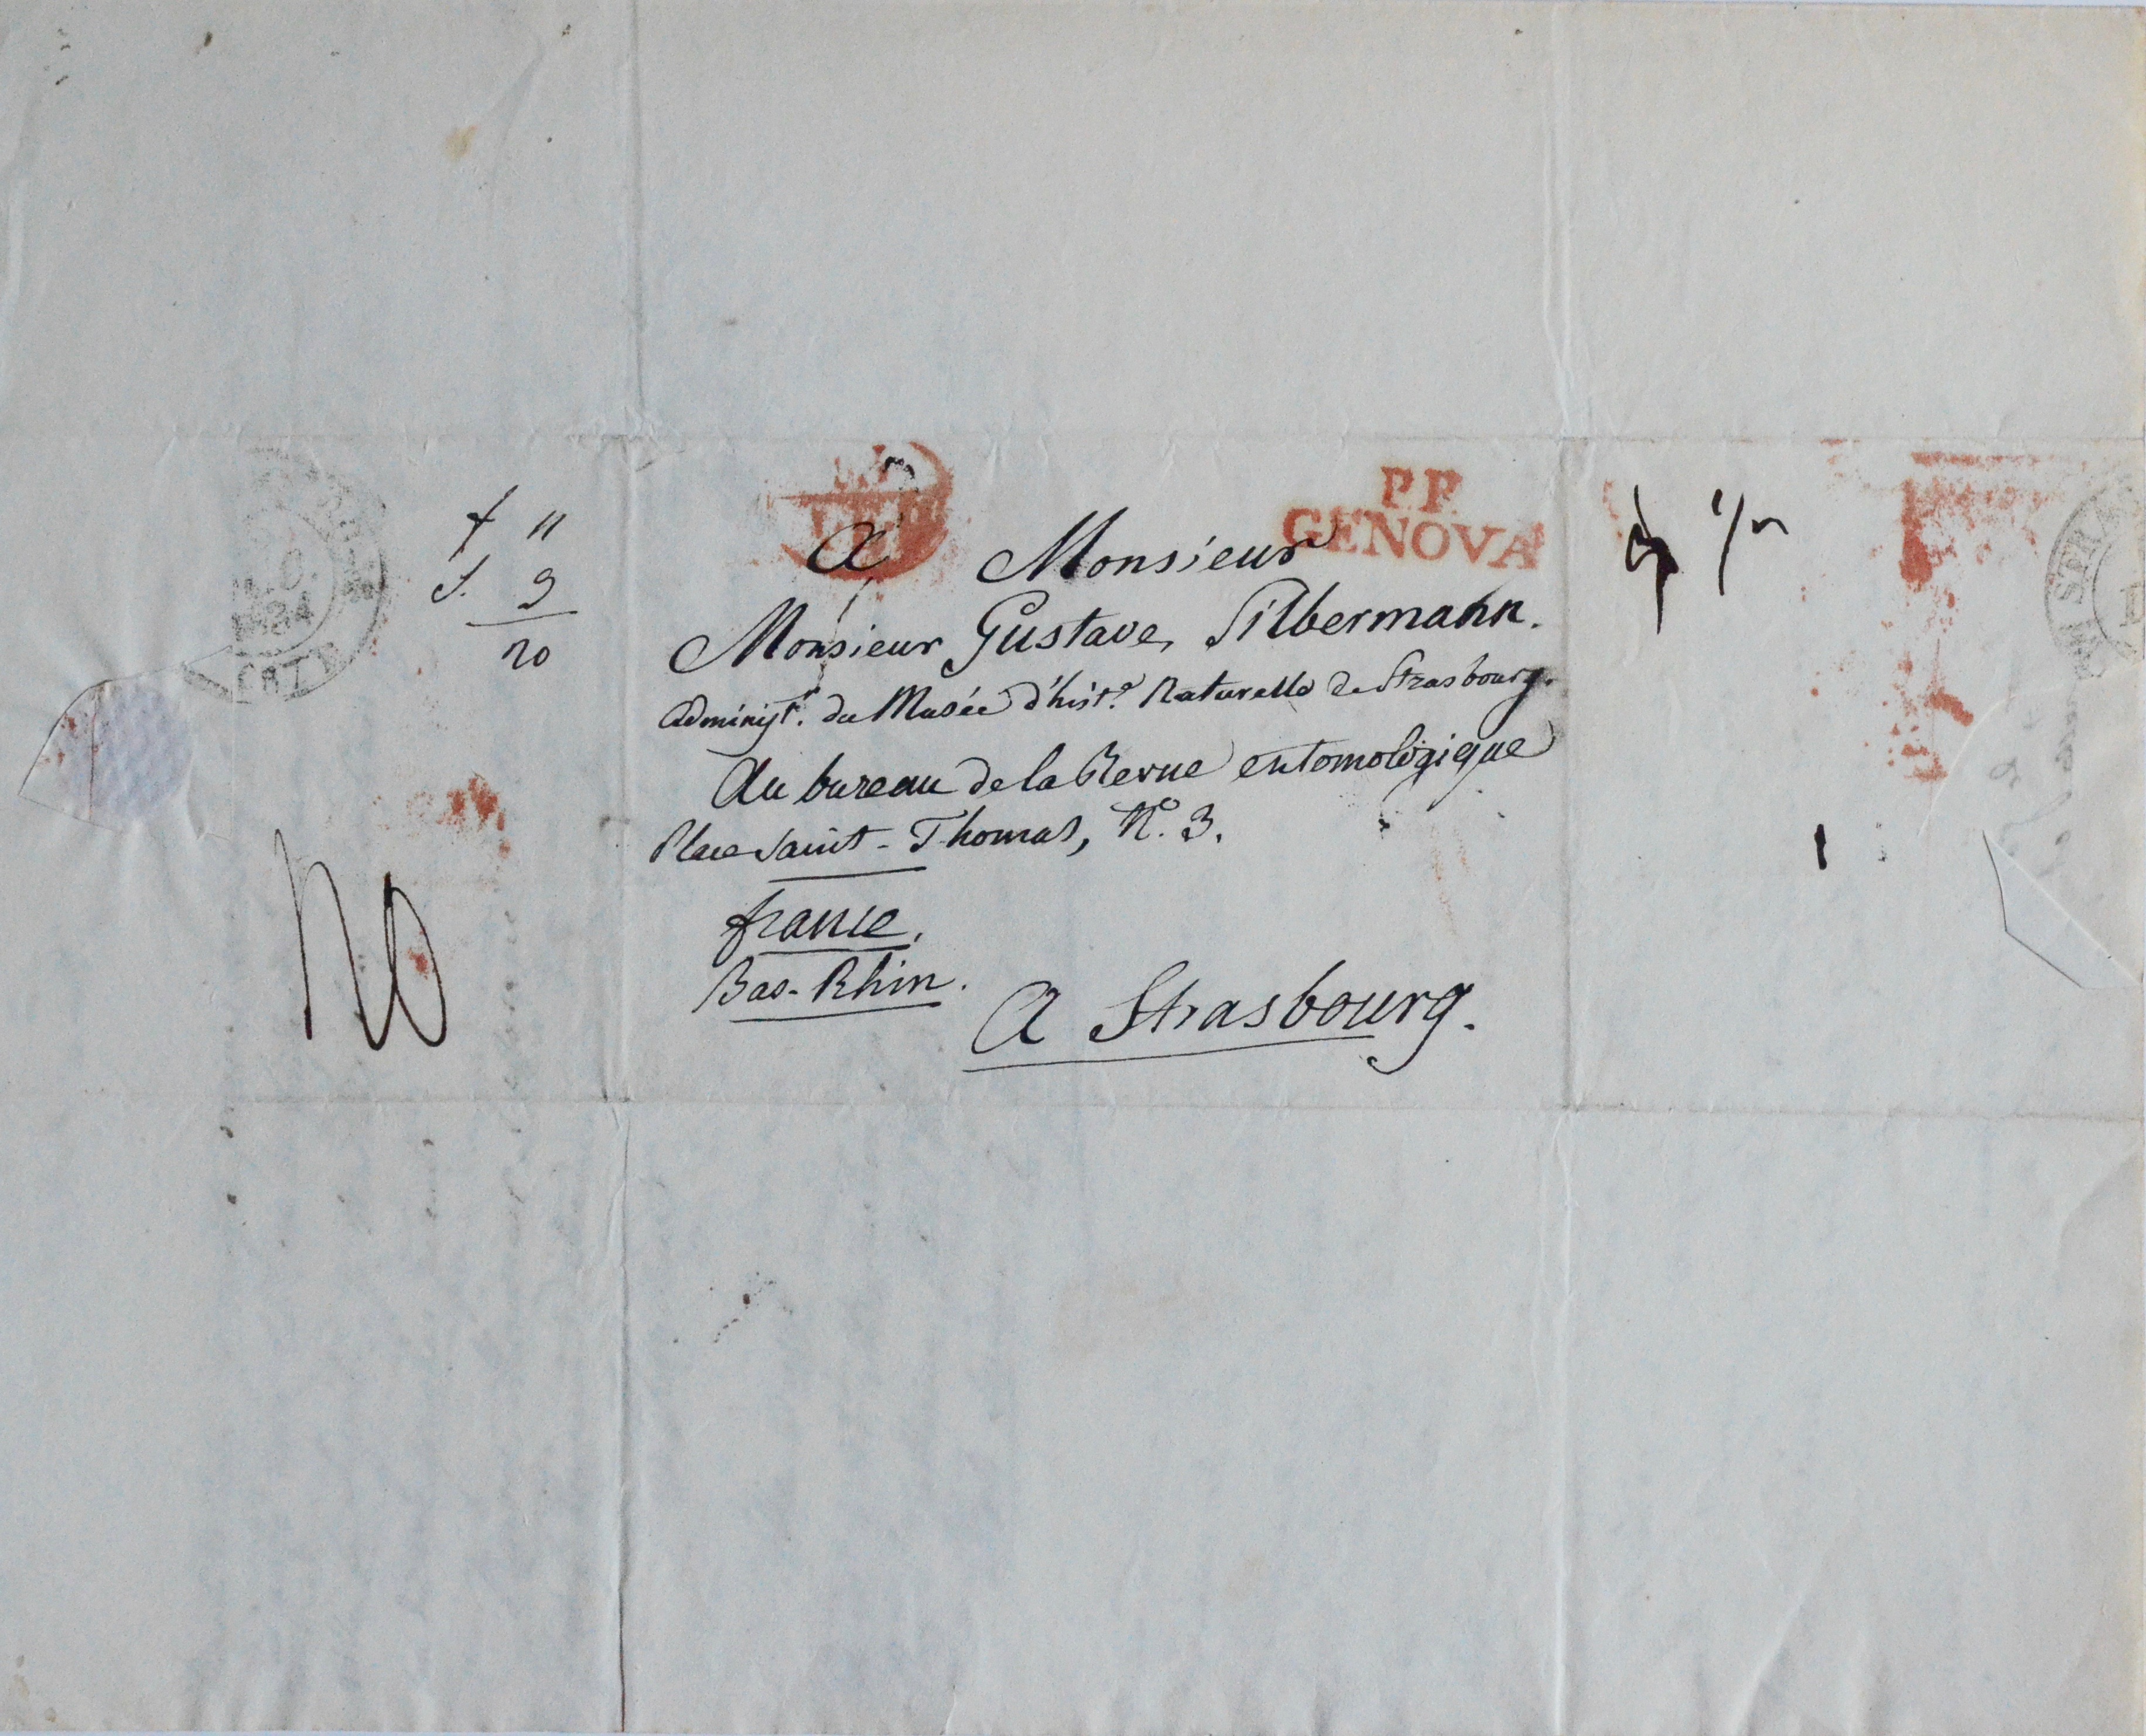 P.P.
GENOVA
A Monsieur
Monsieur Gustave Silbermann.
Administr. du Musée d'histe. Naturelle de Strasbourg.
Au bureau de la Revue entomologique
Place Saint-Thomas, No. 3.
france.
Bas-Rhin.
A Strasbourg.
f 11
S. 9
20
20
STR